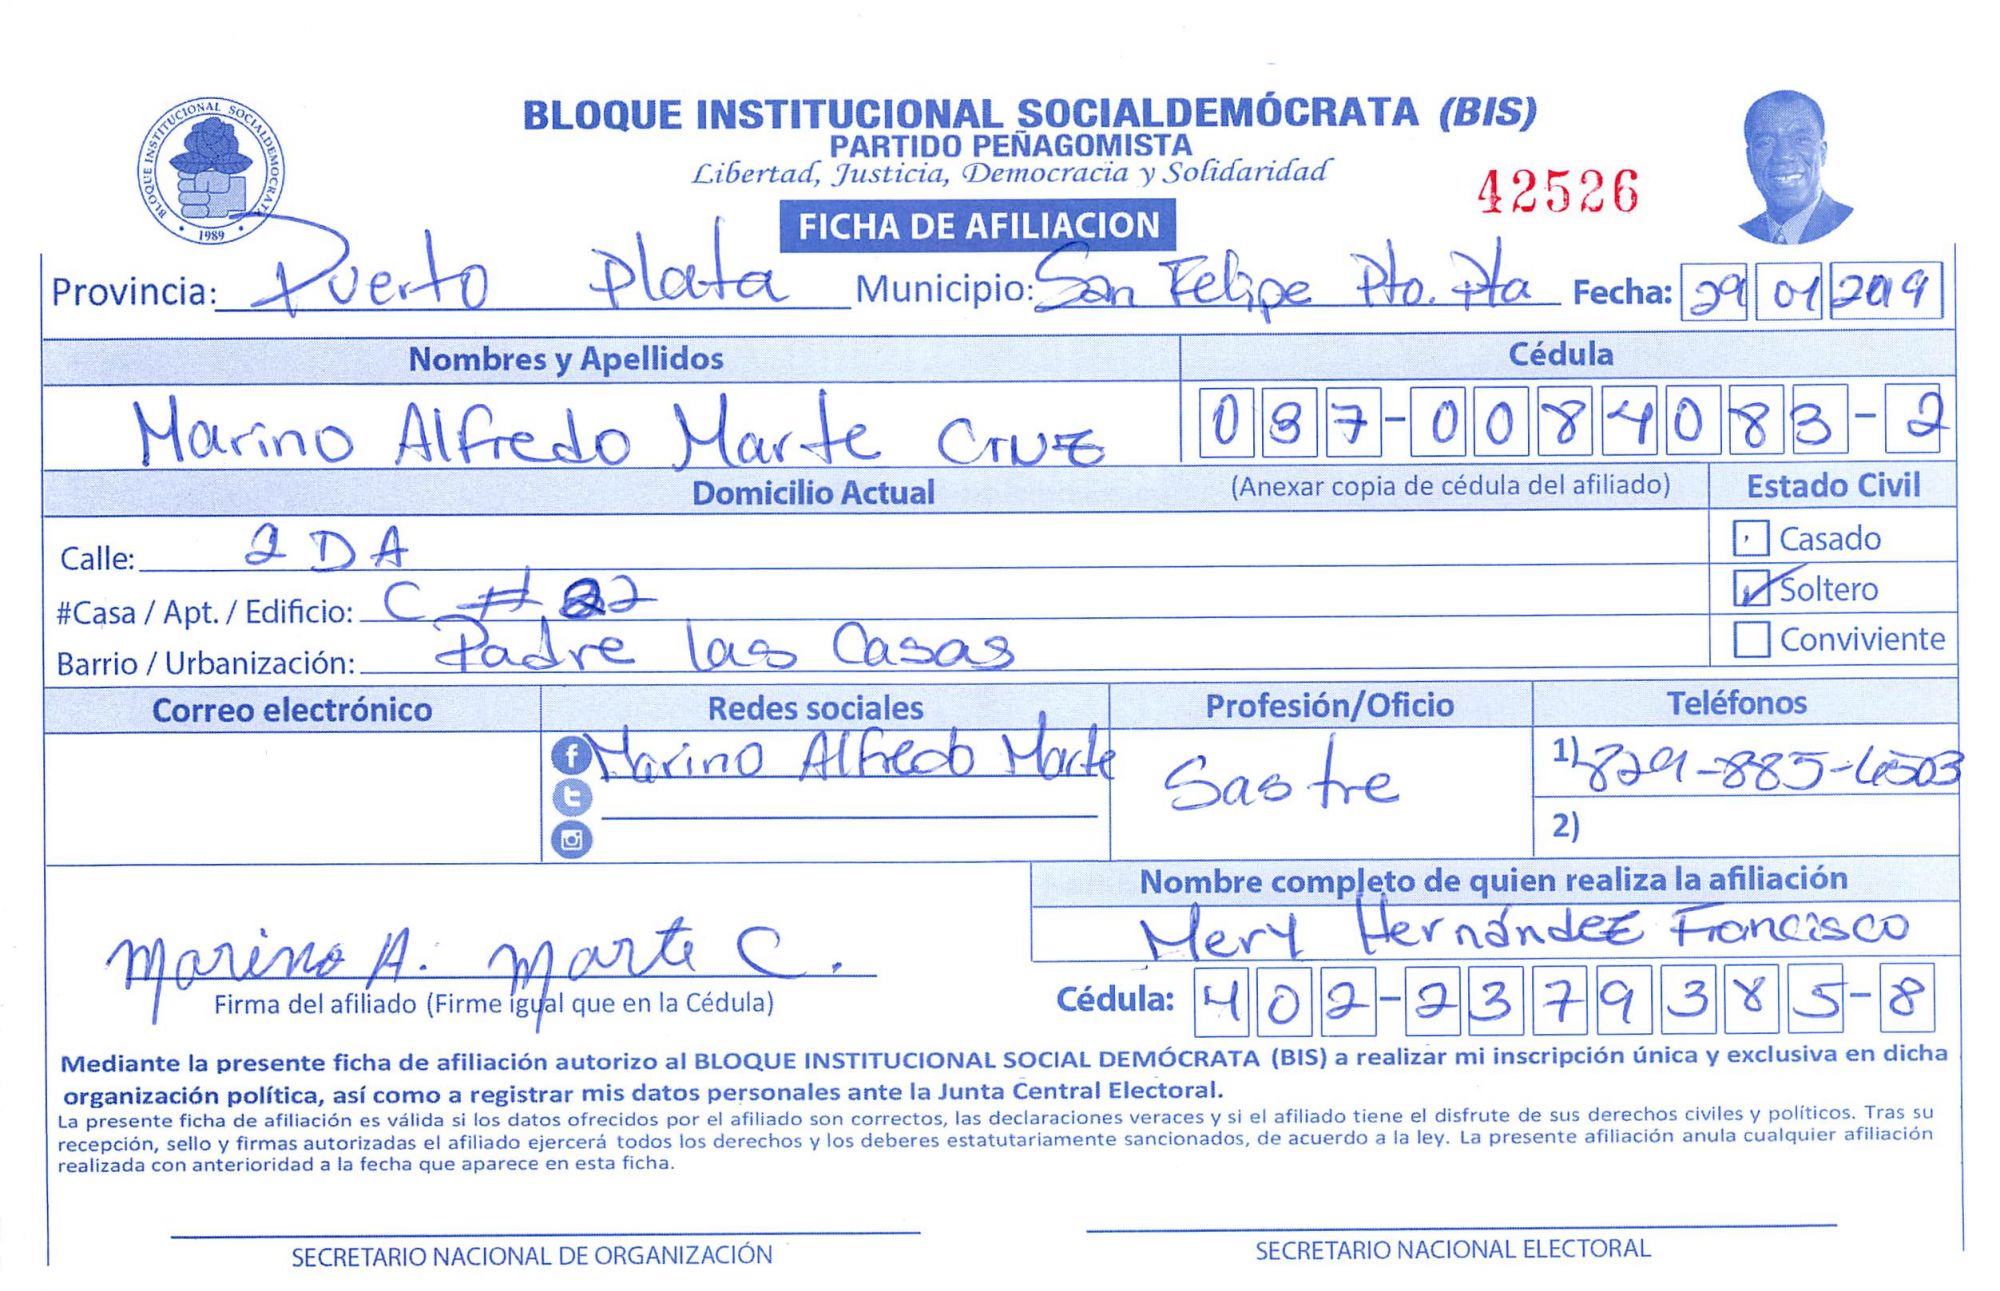 BLOQUE INSTITUCIONAL SOCIALDEMOCRATA
1989
BLOQUE INSTITUCIONAL SOCIALDEMÓCRATA (BIS)
PARTIDO PEÑAGOMISTA
Libertad, Justicia, Democracia y Solidaridad
42526
FICHA DE AFILIACION
Provincia: Puerto Plata Municipio: San Felipe Pto. Pta Fecha: 29 01 2019
Nombres y Apellidos Cédula
Marino Alfredo Marte Cruz 037-0084083-2
Domicilio Actual (Anexar copia de cédula del afiliado) Estado Civil
Calle: 2 DA Casado
#Casa / Apt. / Edificio: C # 22 Soltero
Barrio / Urbanización: Padre las Casas Conviviente
Correo electrónico Redes sociales Profesión/Oficio Teléfonos
Marino Alfredo Marte Sastre 1) 829-885-6503
2)
Nombre completo de quien realiza la afiliación
Mery Hernández Francisco
Marino A. Marte C.
Firma del afiliado (Firme igual que en la Cédula) Cédula: 402-2379385-8
Mediante la presente ficha de afiliación autorizo al BLOQUE INSTITUCIONAL SOCIAL DEMÓCRATA (BIS) a realizar mi inscripción única y exclusiva en dicha
organización política, así como a registrar mis datos personales ante la Junta Central Electoral.
La presente ficha de afiliación es válida si los datos ofrecidos por el afiliado son correctos, las declaraciones veraces y si el afiliado tiene el disfrute de sus derechos civiles y políticos. Tras su
recepción, sello y firmas autorizadas el afiliado ejercerá todos los derechos y los deberes estatutariamente sancionados, de acuerdo a la ley. La presente afiliación anula cualquier afiliación
realizada con anterioridad a la fecha que aparece en esta ficha.
SECRETARIO NACIONAL DE ORGANIZACIÓN SECRETARIO NACIONAL ELECTORAL